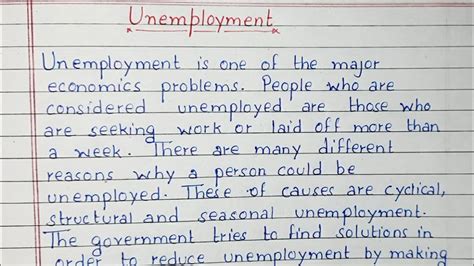 Unemployment
Unemployment is one of the major
economics problems. People who are
considered unemployed are those who
are seeking work or laid off more than
a week. There are many different
reasons why a person could be
unemployed. These of causes are cyclical,
structural and seasonal unemployment.
The government tries to find solutions in
order to reduce unemployment by making